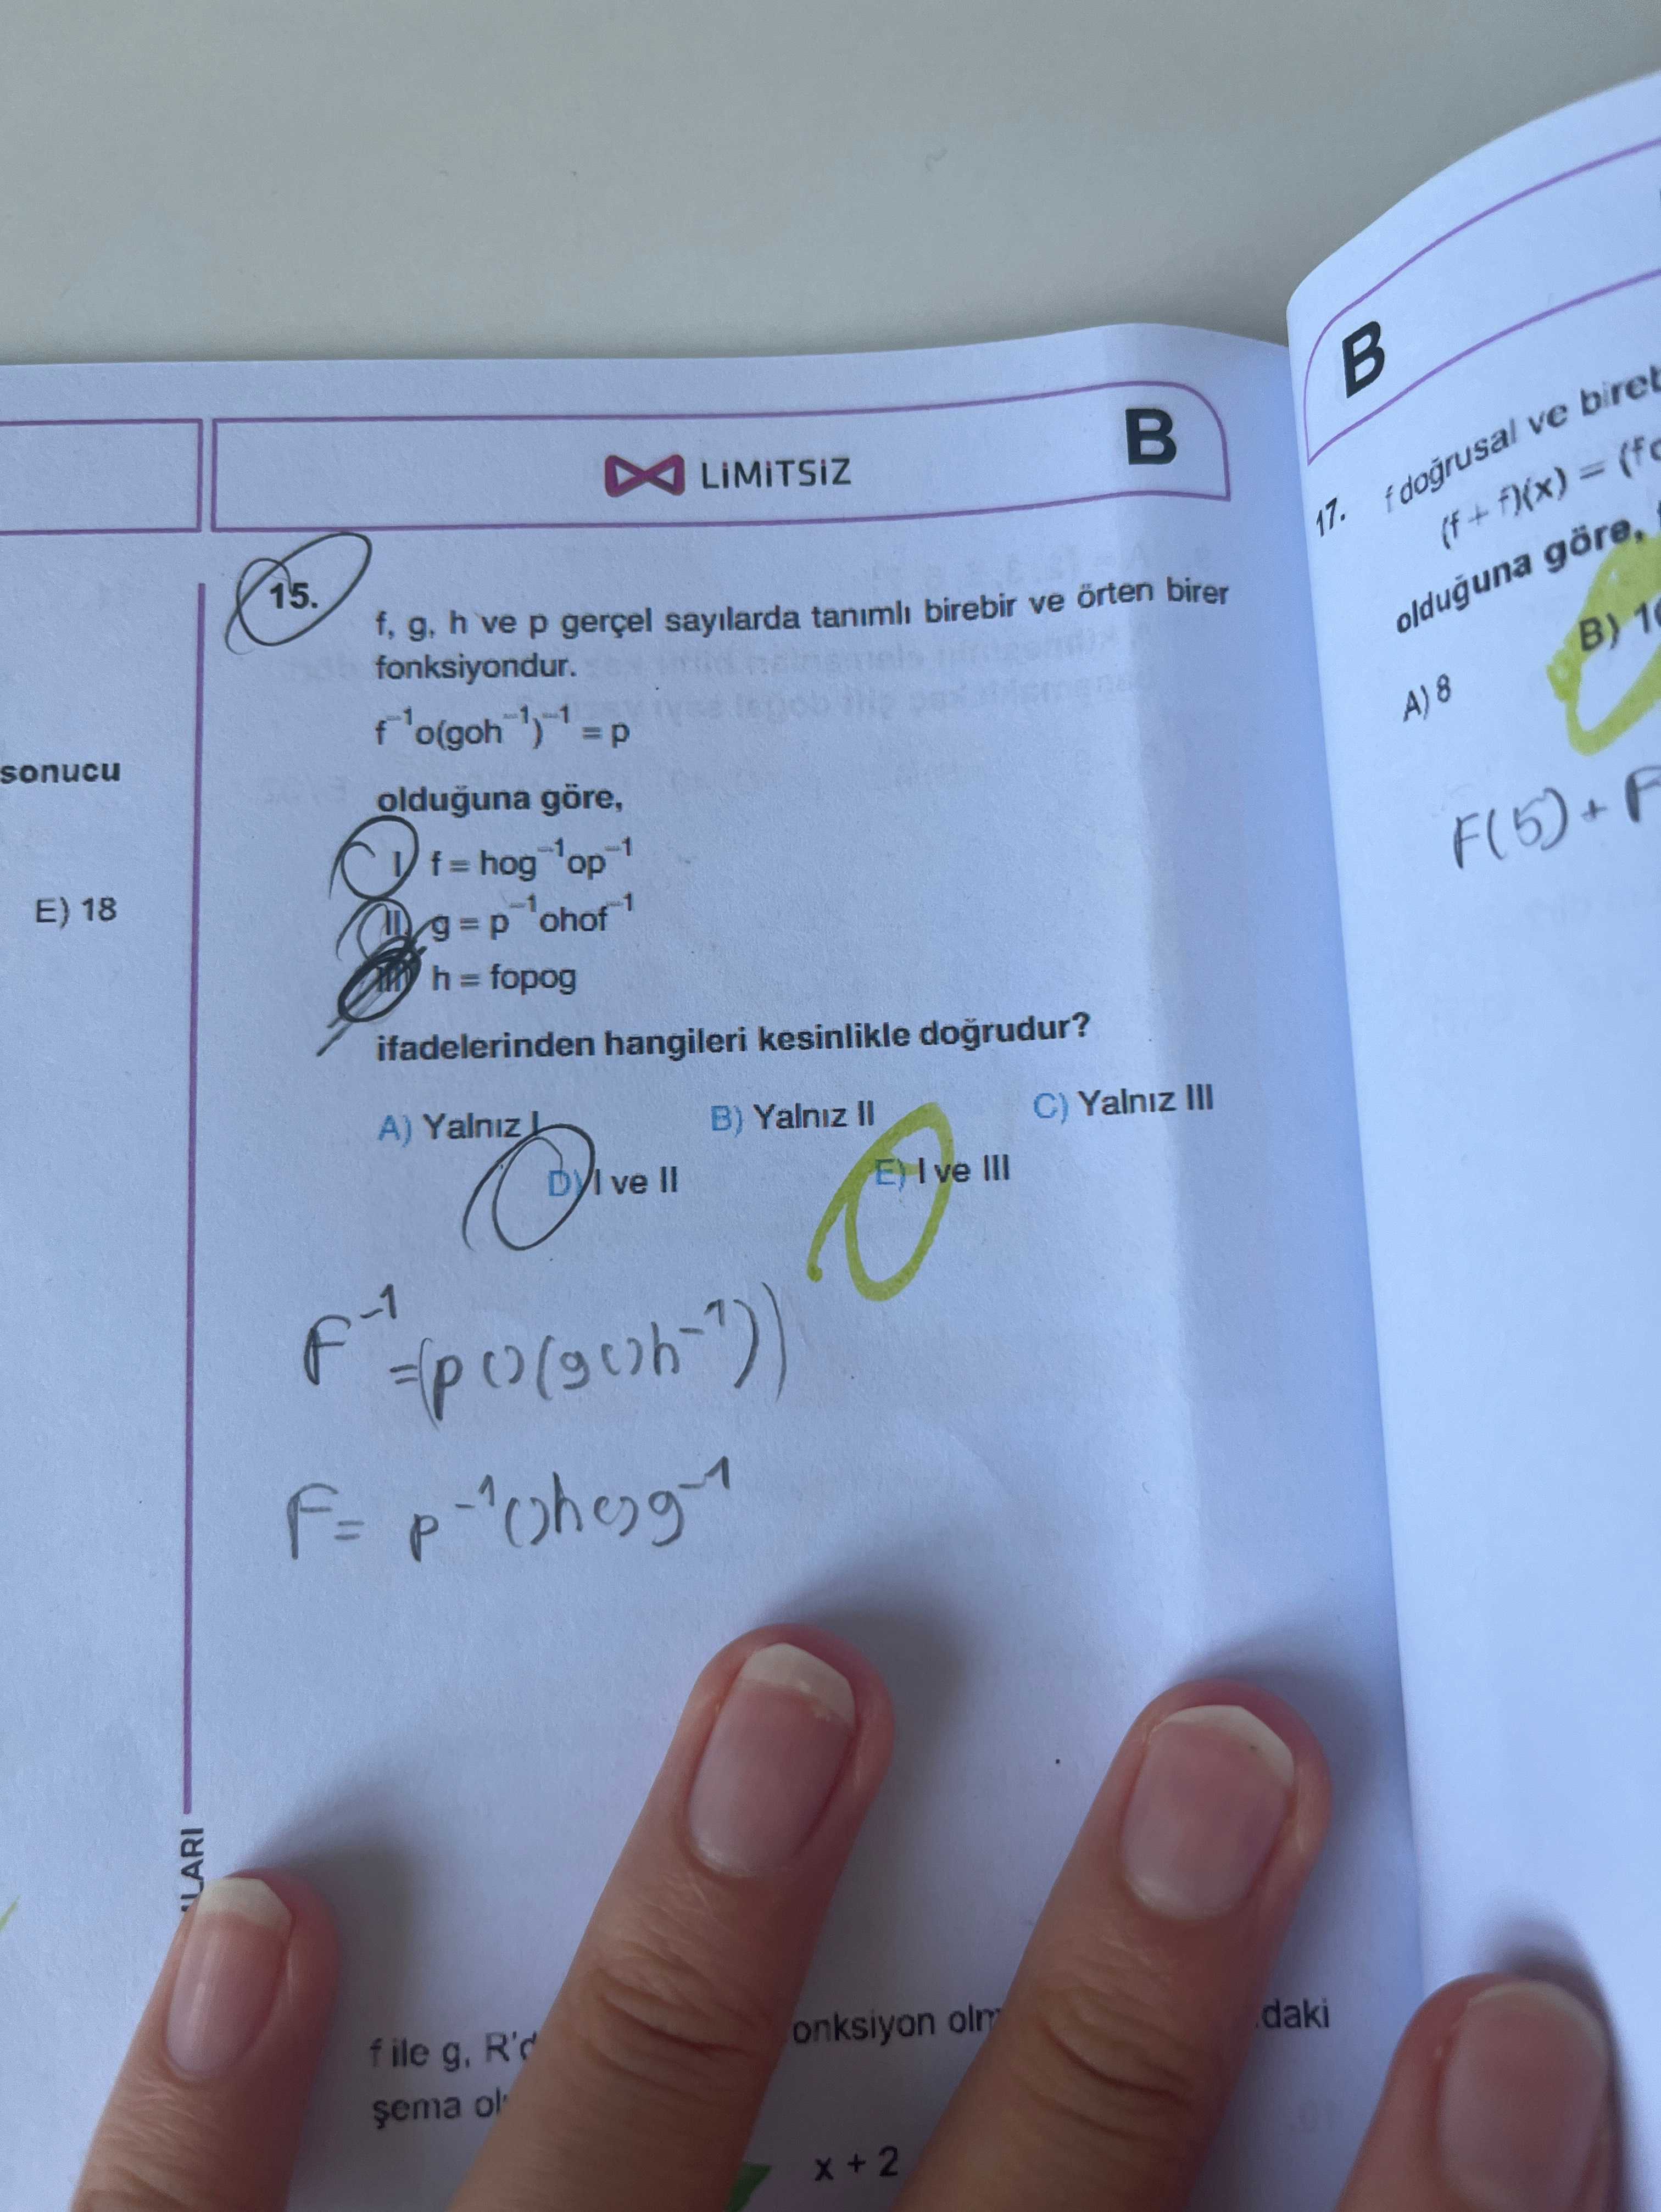 LiMiTSiZ
B
sonucu
E) 18
15.
f, g, h ve p gerçel sayılarda tanımlı birebir ve örten birer
fonksiyondur.
f⁻¹o(goh⁻¹)⁻¹ = p
olduğuna göre,
I. f = hog⁻¹op⁻¹
II. g = p⁻¹ohof⁻¹
h = fopog
ifadelerinden hangileri kesinlikle doğrudur?
A) Yalnız I
B) Yalnız II
C) Yalnız III
D) I ve II
E) I ve III
F⁻¹ =(p()(g()h⁻¹))
F= p⁻¹()h()g⁻¹
f ile g, R'd
daki
x + 2
B
17. f doğrusal ve bireb
(f + f)(x) = (fo
olduğuna göre,
A) 8
B) 1
F(5) + F